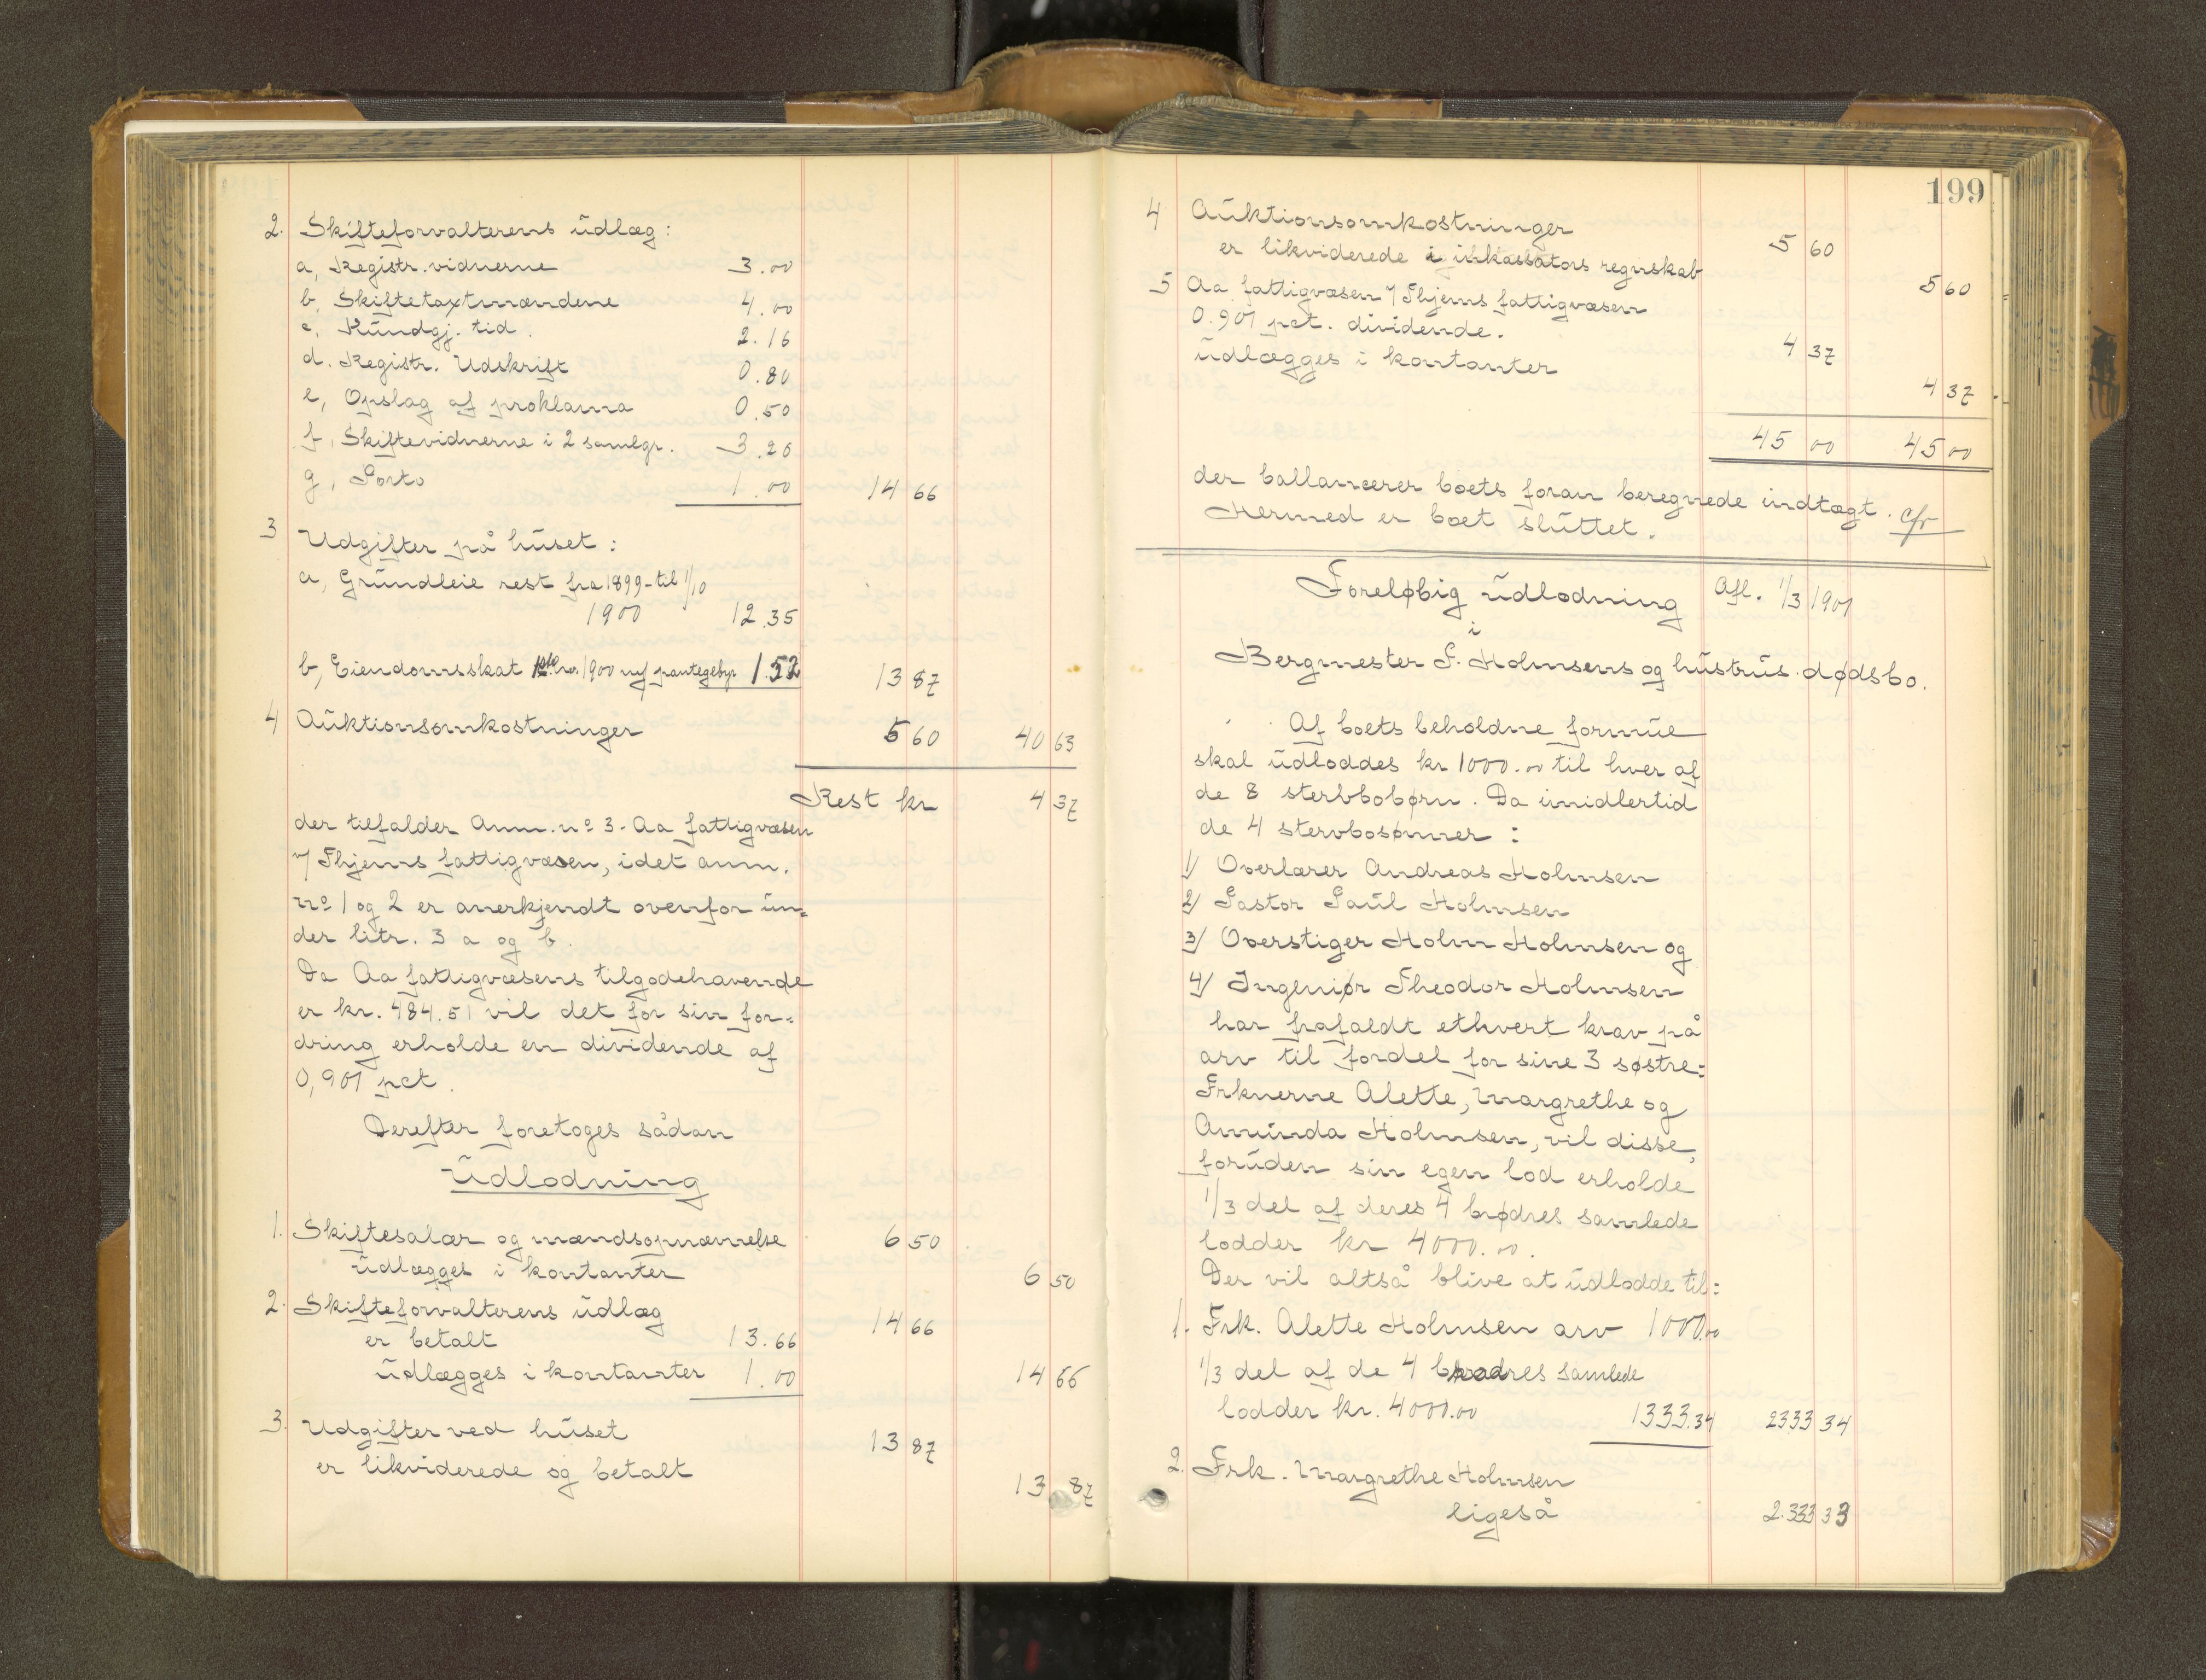 2. Skifteforvalterens udlæg:
a, Registr. vidnerne 3.00
b, Skiftetaxtmændene 4.00
c, Kundgj. tid. 2.16
d. Registr. Udskrift 0.80
e, Opslag af proklama 0.50
f, Skiftevidnerne i 2 samlgr. 3.20
g, Porto 1.00 14 66
3 Udgifter på huset:
a, Grundleie rest fra 1899 - til 1/10
1900 12.35
b, Eiendomsskat 1900 m/ pantegebyr 1.52 13 87
4 Auktionsomkostninger 5 60 40 63
Rest kr 4 37
der tilfalder Anm. no 3 - Aa fattigvæsen
v/ Thjems fattigvæsen, idet anm.
no 1 og 2 er anerkjendt ovenfor un=
der litr. 3 a og b.
Da Aa fattigvæsens tilgodehavende
er kr. 484.51 vil det for sin for=
dring erholde en dividende af
0,901 pct.
Derefter foretoges sådan
Udlodning
1. Skiftesalær og mændsopnævnelse 6 50
udlægges i kontanter 6 50
2. Skifteforvalterens udlæg 14 66
er betalt 13.66
udlægges i kontanter 1.00 14 66
3. Udgifter ved huset 13 87
er likviderede og betalt 13 87
199
4 Auktionsomkostninger 5 60
er likviderede i inkassators regnskab 5 60
5 Aa fattigvæsen v/ Thjems fattigvæsen
0.901 pct. dividende. 4 37
udlægges i kontanter 4 37
45 00 45 00
der ballancerer boets foran beregnede indtægt. cfr
Hermed er boet sluttet.
Foreløbig udlodning Afl. 1/3 1901
i
Bergmester P. Holmsens og hustrus dødsbo.
Af boets beholdne formue
skal udloddes kr 1000.00 til hver af
de 8 stervbobørn. Da imidlertid
de 4 stervbosønner:
1/ Overlærer Andreas Holmsen
2/ Pastor Paul Holmsen
3/ Overstiger Holm Holmsen og
4/ Ingeniør Theodor Holmsen
har frafaldt ethvert krav på
arv til fordel for sine 3 søstre:
Frknerne Alette, Margrethe og
Aminda Holmsen, vil disse,
foruden sin egen lod erholde
1/3 del af deres 4 brødres samlede
lodder kr 4000.00.
Der vil altså blive at udlodde til:
1. Frk. Alette Holmsen arv 1000.00
1/3 del af de 4 brødres samlede
lodder kr. 4000.00 1333.34 2333 34
2. Frk. Margrethe Holmsen
ligeså 2.333 33